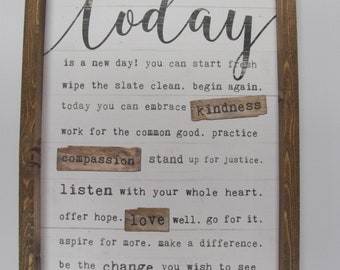 today
is a new day! you can start fresh
wipe the slate clean. begin again.
today you can embrace kindness
work for the common good. practice
compassion stand up for justice.
listen with your whole heart.
offer hope. love well. go for it.
aspire for more. make a difference.
be the change you wish to see